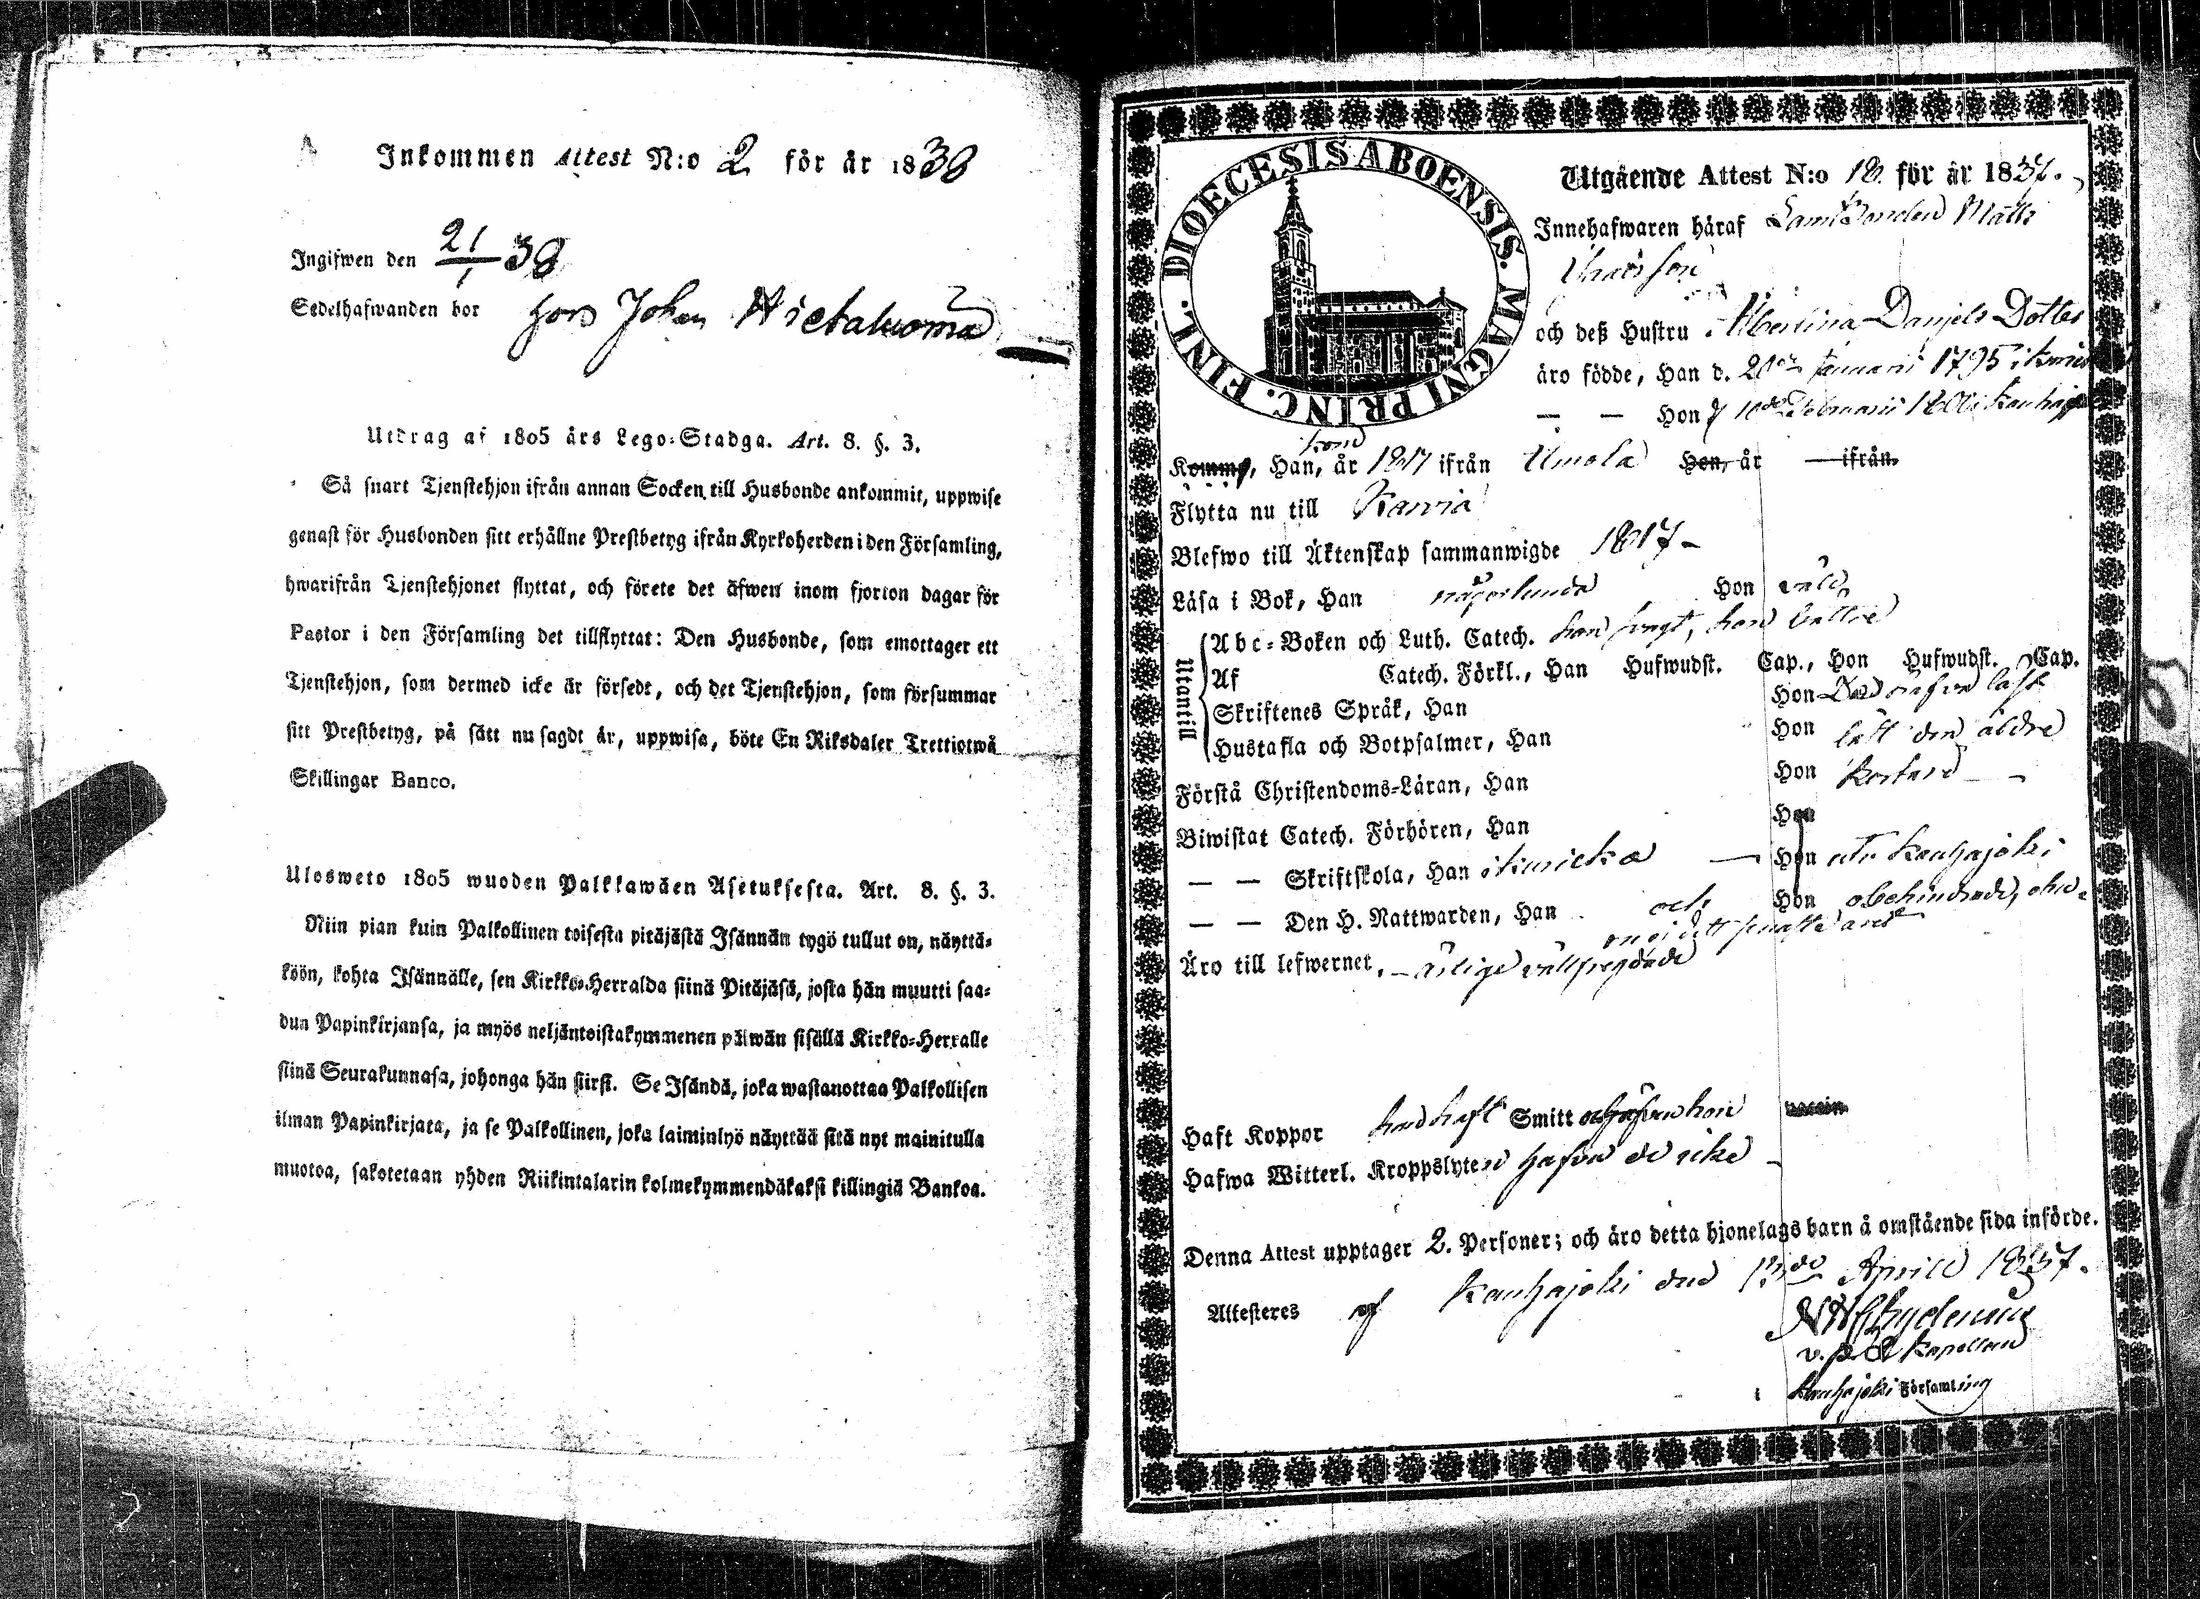 Inkommen Attest N:o 2 för år 1838
Ingifwen den 21/1 38
Sedelhafwanden bor hos Johan Hietaluoma
Utdrag af 1805 års Lego-Stadga. Art. 8. §. 3.
Så snart Tjenstehjon ifrån annan Socken till Husbonde ankommit, uppwise
genast för Husbonden sitt erhållne Prestbetyg ifrån Kyrkoherden i den Församling,
hwarifrån Tjenstehjonet flyttat, och förete det äfwen inom fjorton dagar för
Pastor i den Församling det tillflyttat: Den Husbonde, som emottager ett
Tjenstehjon, som dermed icke är försedt, och det Tjenstehjon, som försummar
sitt Prestbetyg, på sätt nu sagdt är, uppwisa, böte En Riksdaler Trettiotwå
Skillingar Banco.
Ulosweto 1805 wuoden Palkkawäen Asetuksesta. Art. 8. §. 3.
Niin pian kuin Palkollinen toisesta pitäjästä Isännän tygö tullut on, näyttä-
köön, kohta Isännälle, sen Kirkko-Herralda siinä Pitäjäsä, josta hän muutti saa-
dun Papinkirjansa, ja myös neljäntoistakymmenen päiwän sisällä Kirkko-Herralle
siinä Seurakunnasa, johonga hän siirsi. Se Isändä, joka wastanottaa Palkollisen
ilman Papinkirjata, ja se Palkollinen, joka laiminlyö näyttää sitä nyt mainitulla
muotoa, sakotetaan yhden Riikintalarin kolmekymmendäkaksi killingiä Bankoa.
DIOECESIS ABOENSIS. MAGNI PRINC. FINL.
Utgående Attest N:o 18 för år 1837.
Innehafwaren häraf Landbonden Matts
och deß Hustru Albertina Daniels Dotter
äro födde, Han d. 21 Januarii 1795 i
— — Hon d 10de Februarii
kom
Komme, Han, år 1817 ifrån Ilmola Hon, år — ifrån
Flytta nu till Karvia
Blefwo till Äktenskap sammanwigde 1817
Läsa i Bok, Han någorlunda Hon väl
Utantill
Abc-Boken och Luth. Catech. han svagt, hon bättre
Af Catech. Förkl., Han Hufwudst. Cap., Hon Hufwudst. Cap.
Skriftenes Språk, Han Hon
Hustafla och Botpsalmer, Han Hon läst den äldre
Förstå Christendoms-Läran, Han Hon
Biwistat Catech. Förhören, Han Hon
— — Skriftskola, Han i Kuricka — Hon uti Kauhajoki
— — Den H. Nattwarden, Han och Hon obehindrade,
Äro till lefwernet, ärlige välfrejdade
Haft Koppor han haft Smitt hon
Hafwa Witterl. Kroppslyten hafva de icke
Denna Attest upptager 2. Personer; och äro detta hjonelags barn å omstående sida införde.
Attesteres af Kauhajoki den Aprill 1837.
v. p. Kapellan
i Kauhajoki Församling